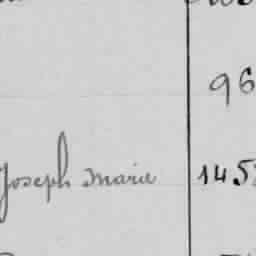 96
Joseph Marie 145